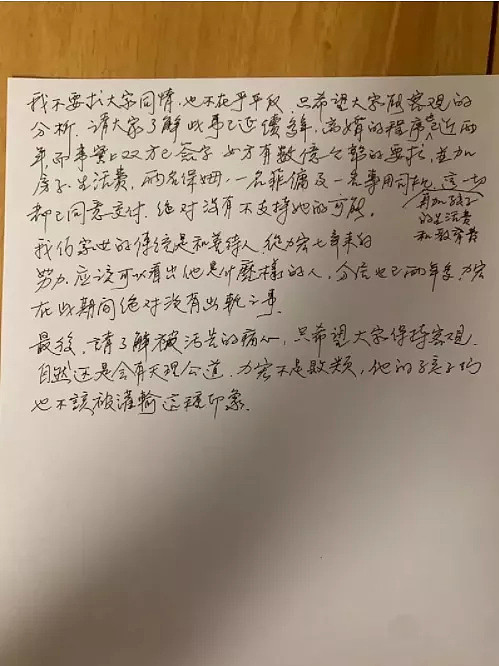 我不要求大家同情,也不在乎平反,只希望大家能客观的
分析.請大家了解此事已延續多年,离婚的程序已近两
年,而事實上双方已签字.女方有数億金額的要求,並加
房子.生活费,两名保姆,一名菲傭及一名專用司机.這一切
再加孩子
都已同意交付.绝对沒有不支持她的可能.
的生活费
和教育费
我们家世的傳統是和善待人,從力宏七年来的
努力.应該可以看出他是什麼樣的人,分居也已两年多,力宏
在此期間绝对沒有出軌之事.
最後,請了解被誣告的痛心,只希望大家保持客观.
自然还是会有天理公道.力宏不是败類,他的孩子们
也不該被灌輸這種印象.